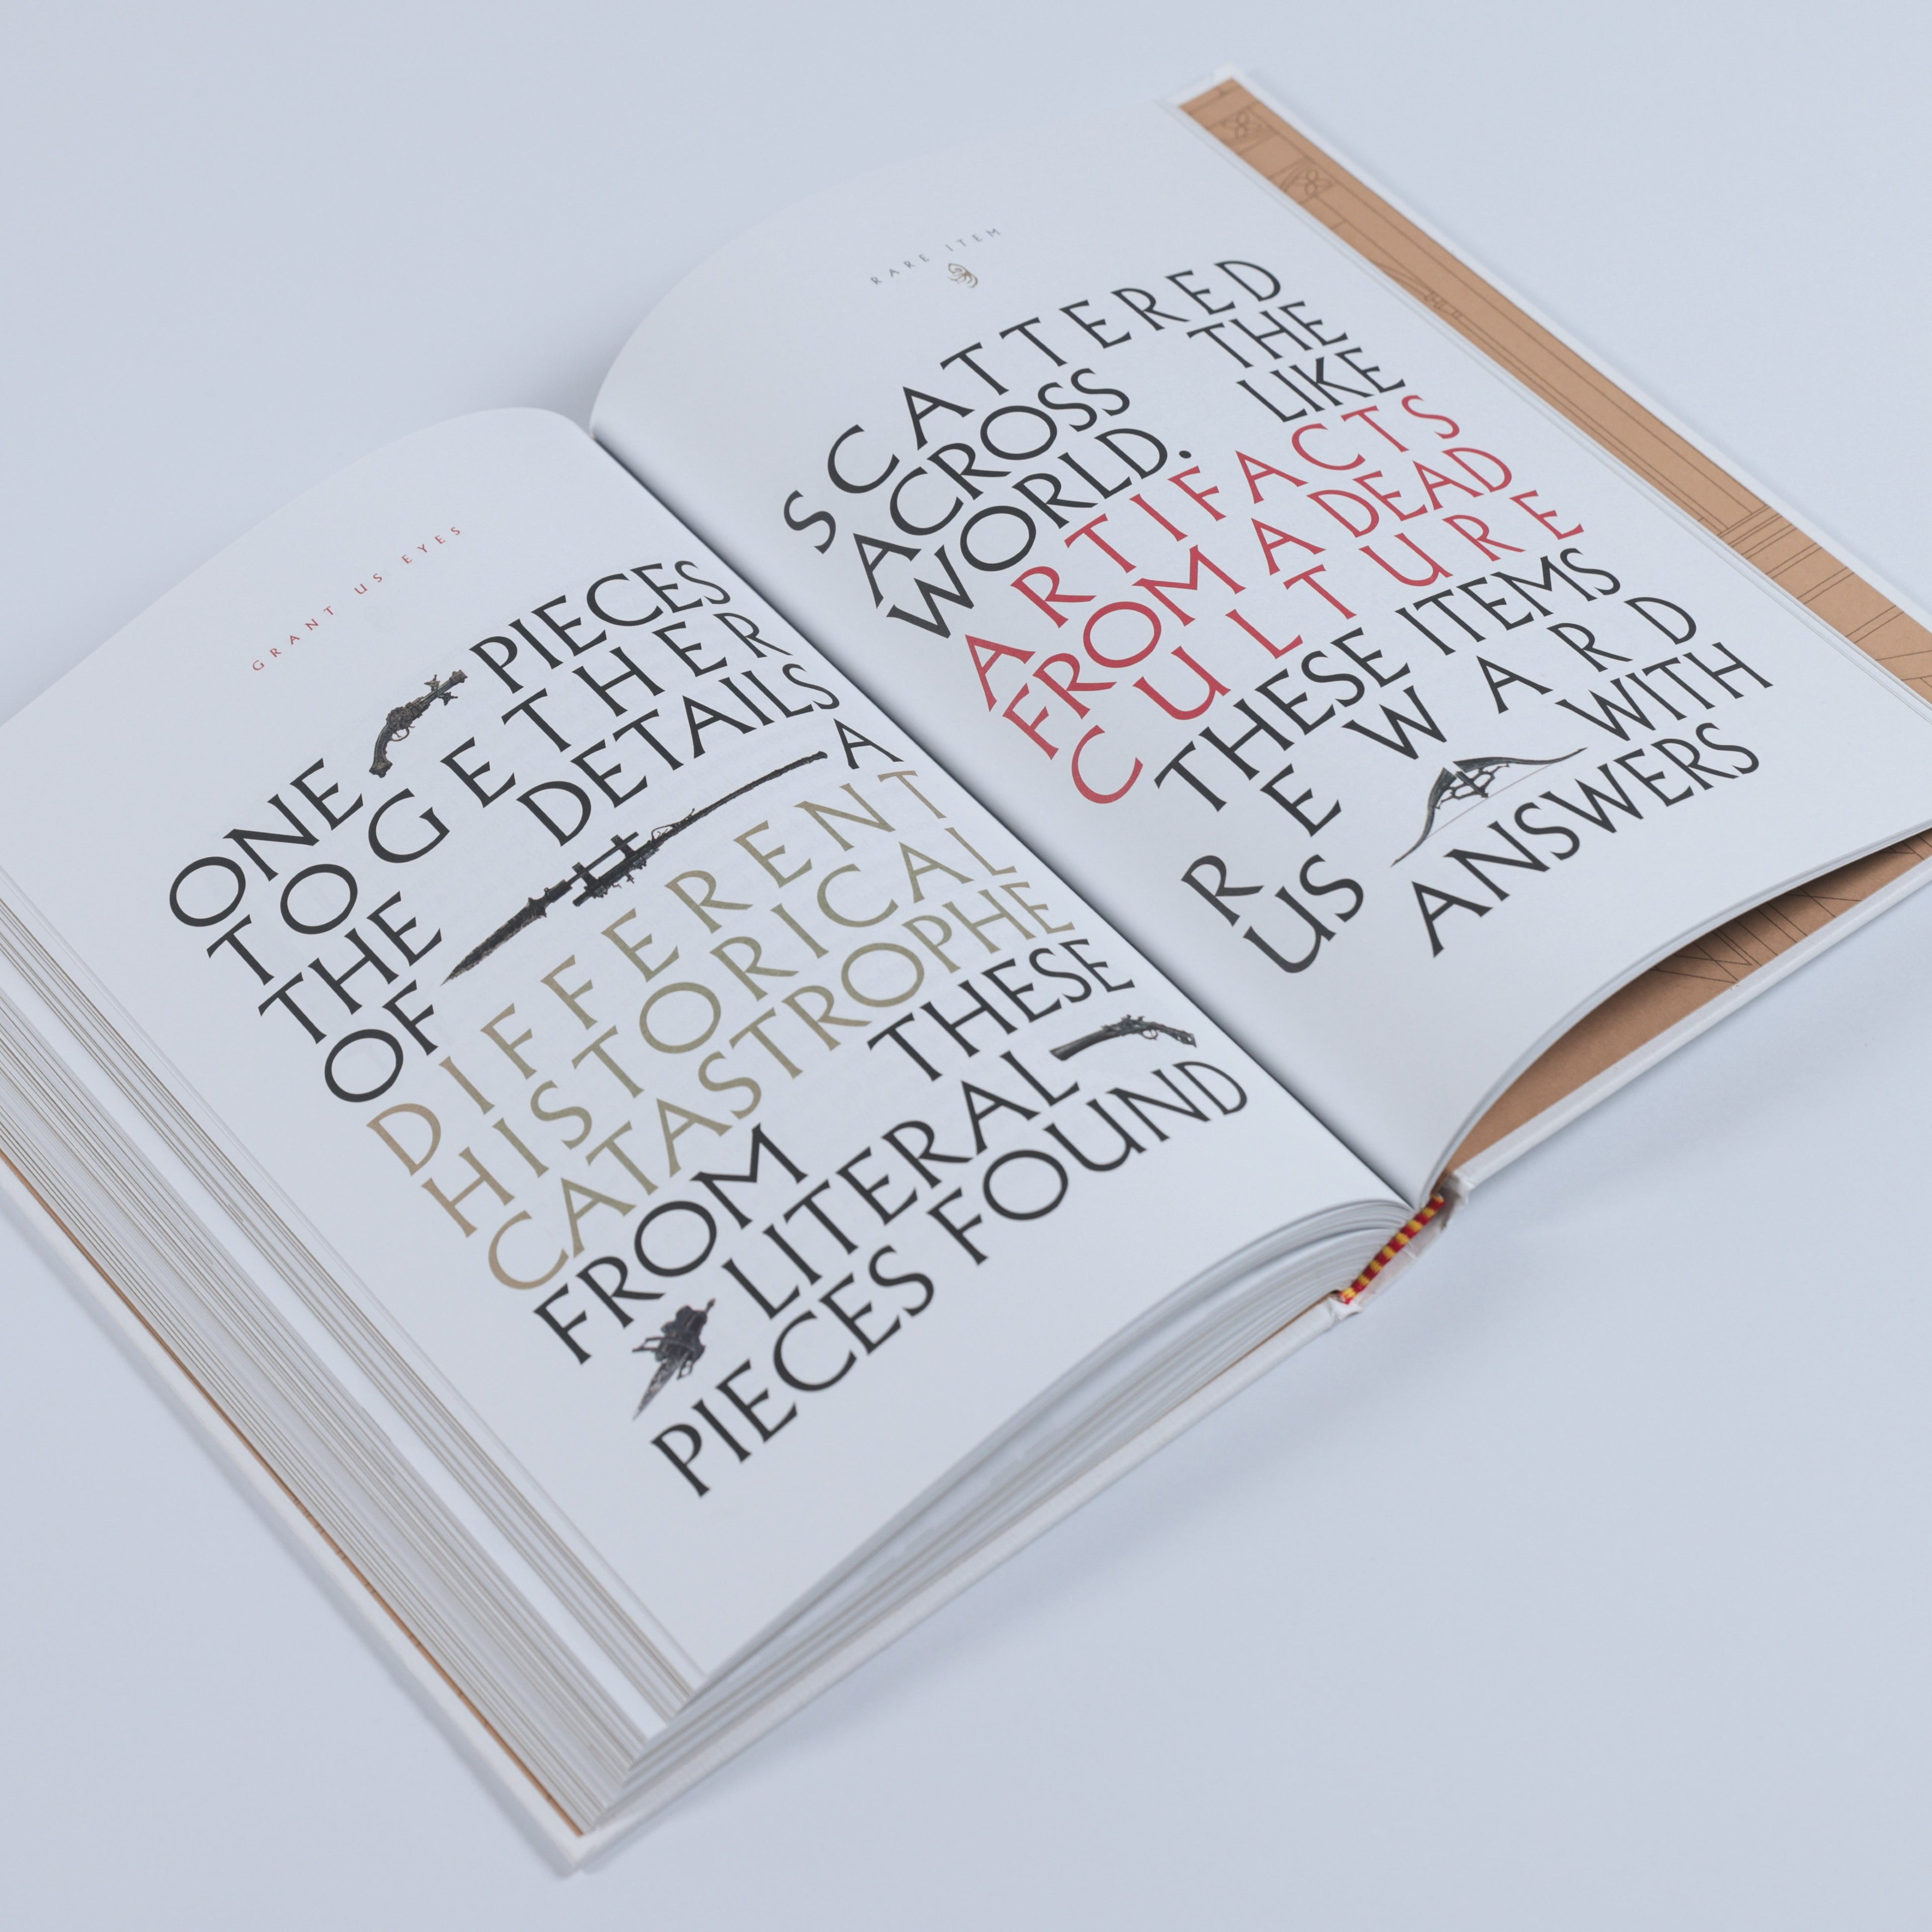 GRANT US EYES
ONE PIECES
TOGETHER
THE DETAILS
OF A
DIFFERENT
HISTORICAL
CATASTROPHE
FROM THESE
LITERAL
PIECES FOUND
RARE ITEM
SCATTERED
ACROSS THE
WORLD. LIKE
ARTIFACTS
FROM A DEAD
CULTURE
THESE ITEMS
REWARD
US WITH
ANSWERS